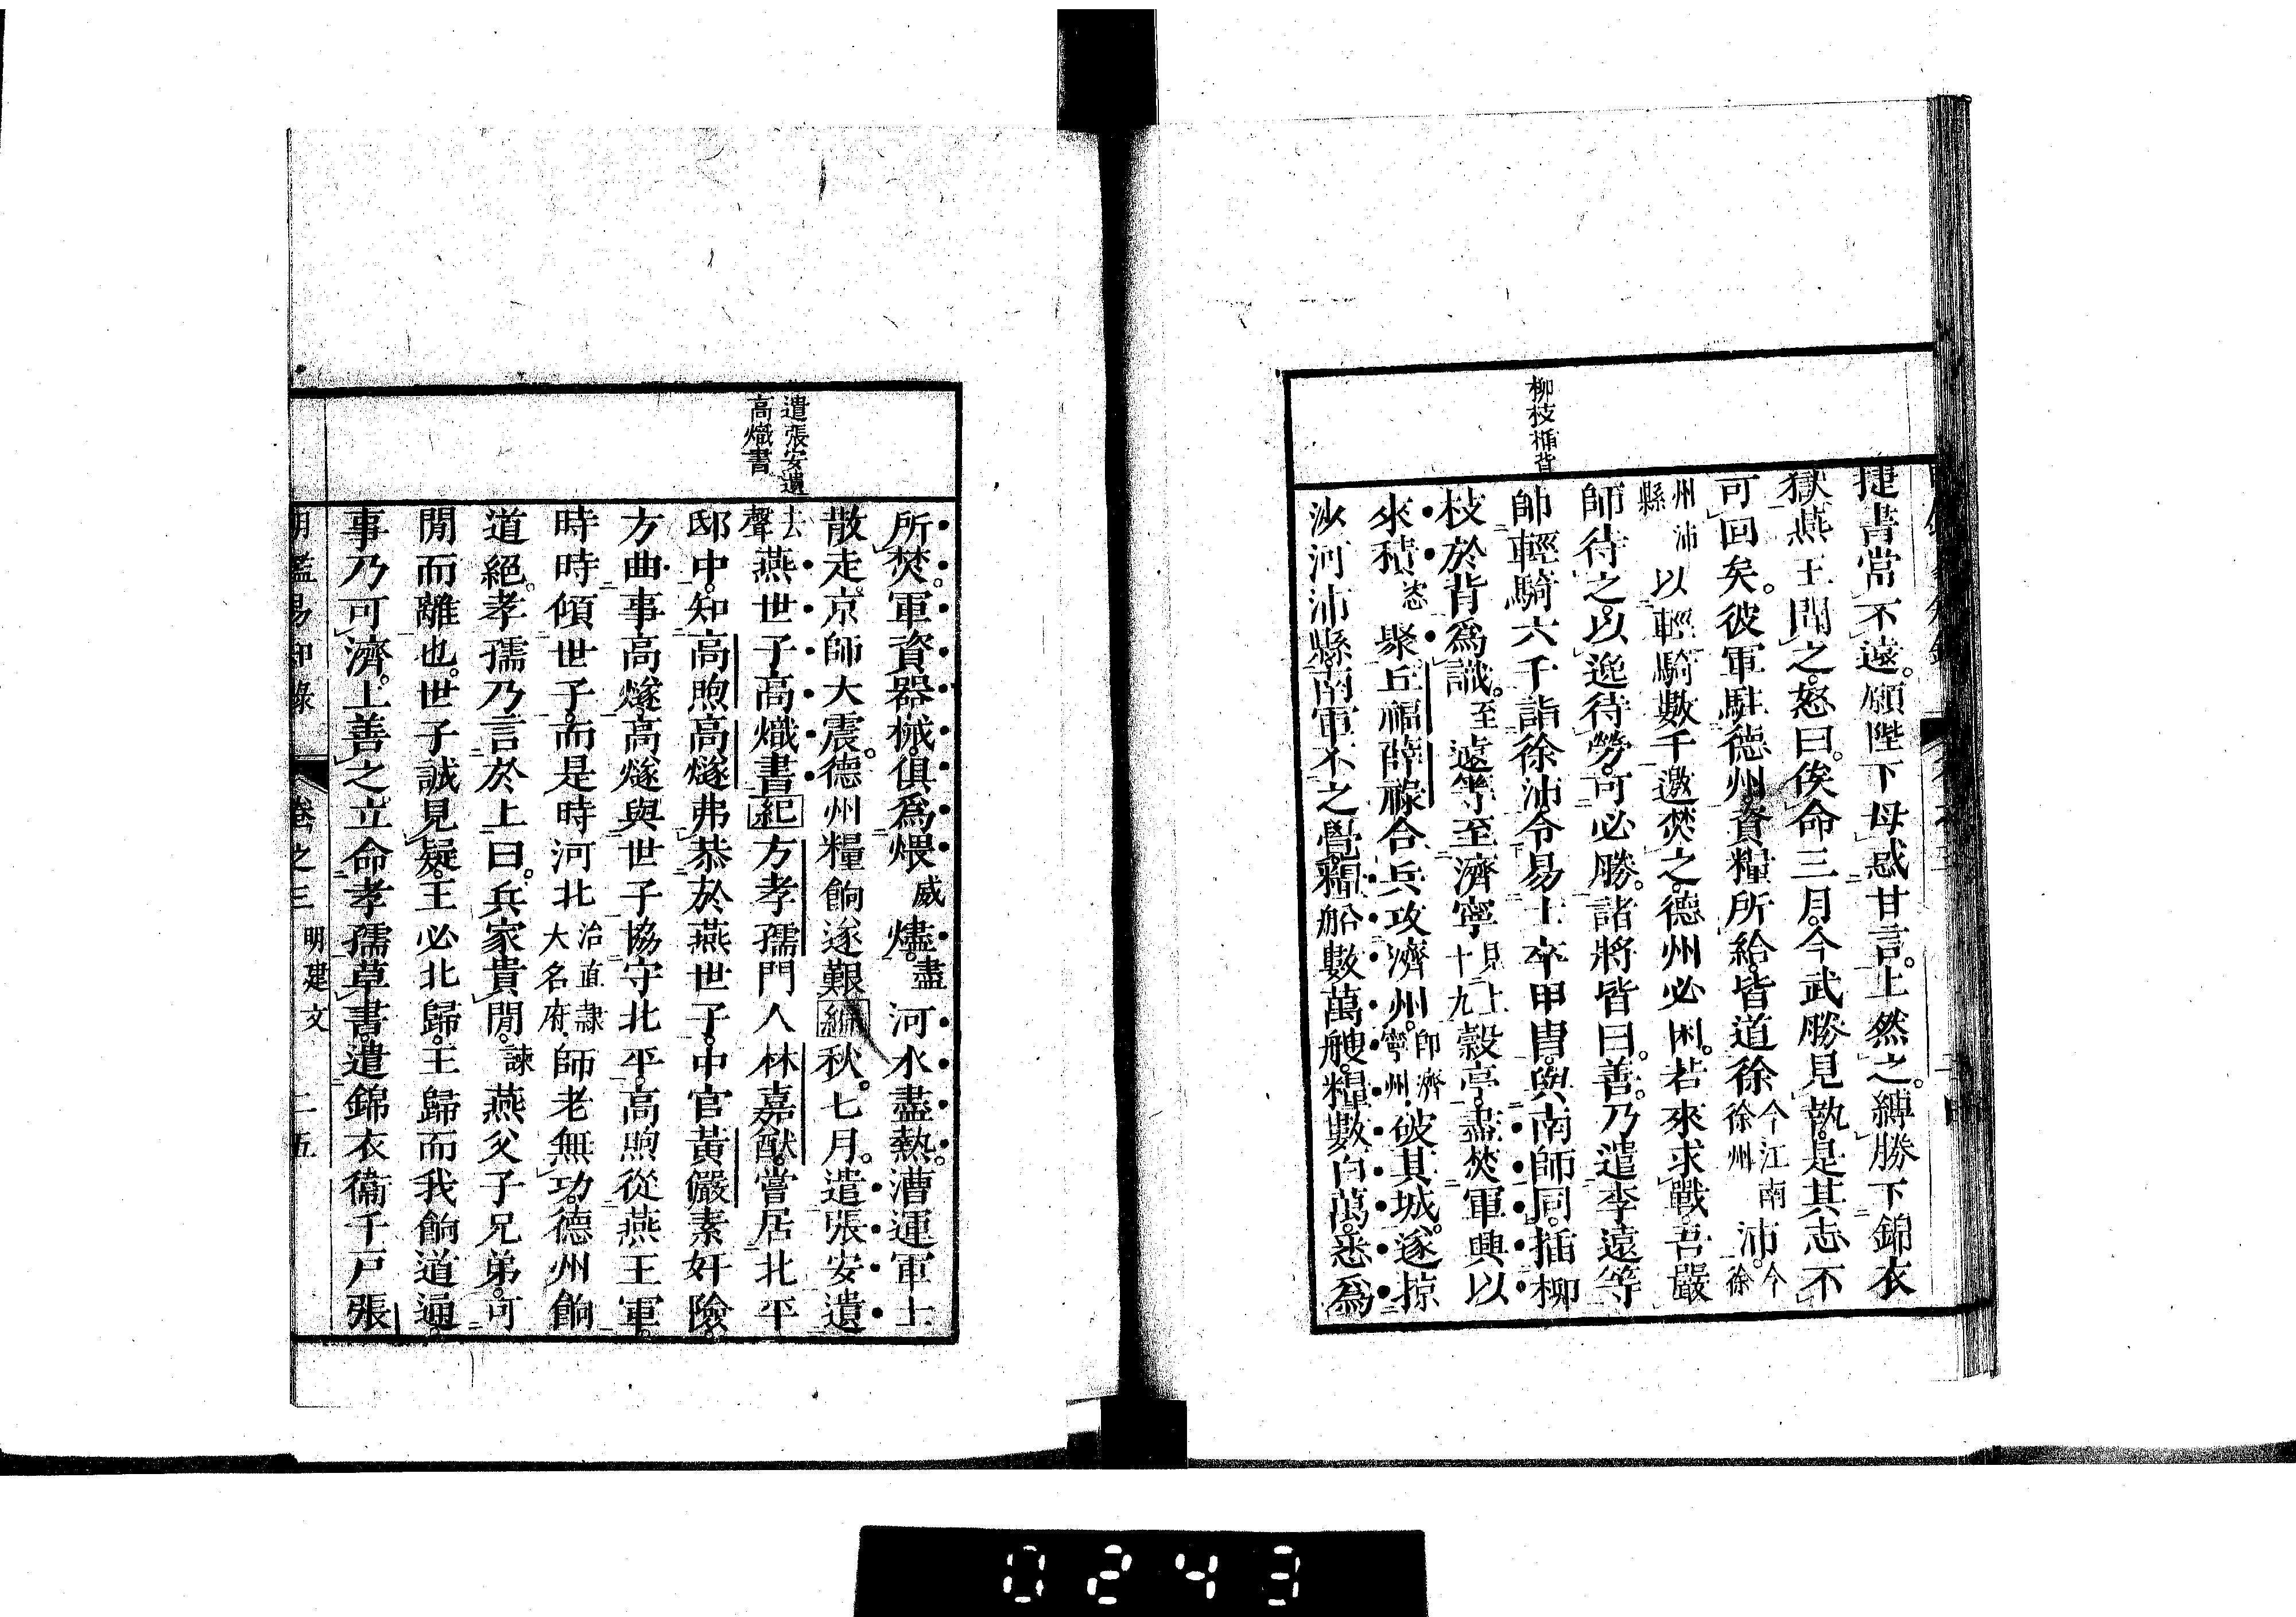 柳枝插背
捷書當不遠。願陛下毋惑甘言。上然之。縛勝下錦衣
獄。燕王聞之。怒曰。俟命三月。今武勝見執。是其志不
可回矣。彼軍駐德州。資糧所給。皆道徐今江南徐州沛。今徐
州沛縣以輕騎數千邀焚之。德州必困。若來求戰。吾嚴
師待之。以逸待勞。可必勝。諸將皆曰。善。乃遣李遠等
帥輕騎六千詣徐沛。令易士卒甲冑。與南師同。插柳
枝於背爲識。至遠等至濟寧見上十九穀亭。盡焚軍興以
來積恣聚。丘福薛祿合兵攻濟州。卽濟寧州。破其城。遂掠
沙河沛縣。南軍不之覺。糧船數萬艘。糧數百萬。悉爲
遣張安遺
高熾書
所焚。軍資器械。俱爲煨威燼。盡河水盡熱。漕運軍士
散走。京師大震。德州糧餉遂艱編秋。七月。遣張安遺
去聲燕世子高熾書紀方孝孺門人林嘉猷。嘗居北平
邸中。知高煦高燧弗恭於燕世子。中官黃儼素奸險。
方曲事高燧。高燧與世子協守北平。高煦從燕王軍。
時時傾世子。而是時河北治直隸大名府。師老無功。德州餉
道絕。孝孺乃言於上曰。兵家貴閒。諫燕父子兄弟。可
閒而離也。世子誠見疑。王必北歸。王歸而我餉道通。
事乃可濟。上善之。立命孝孺草書。遣錦衣衞千戶張
明鑑易知錄 卷之三 明建文 二五
0243